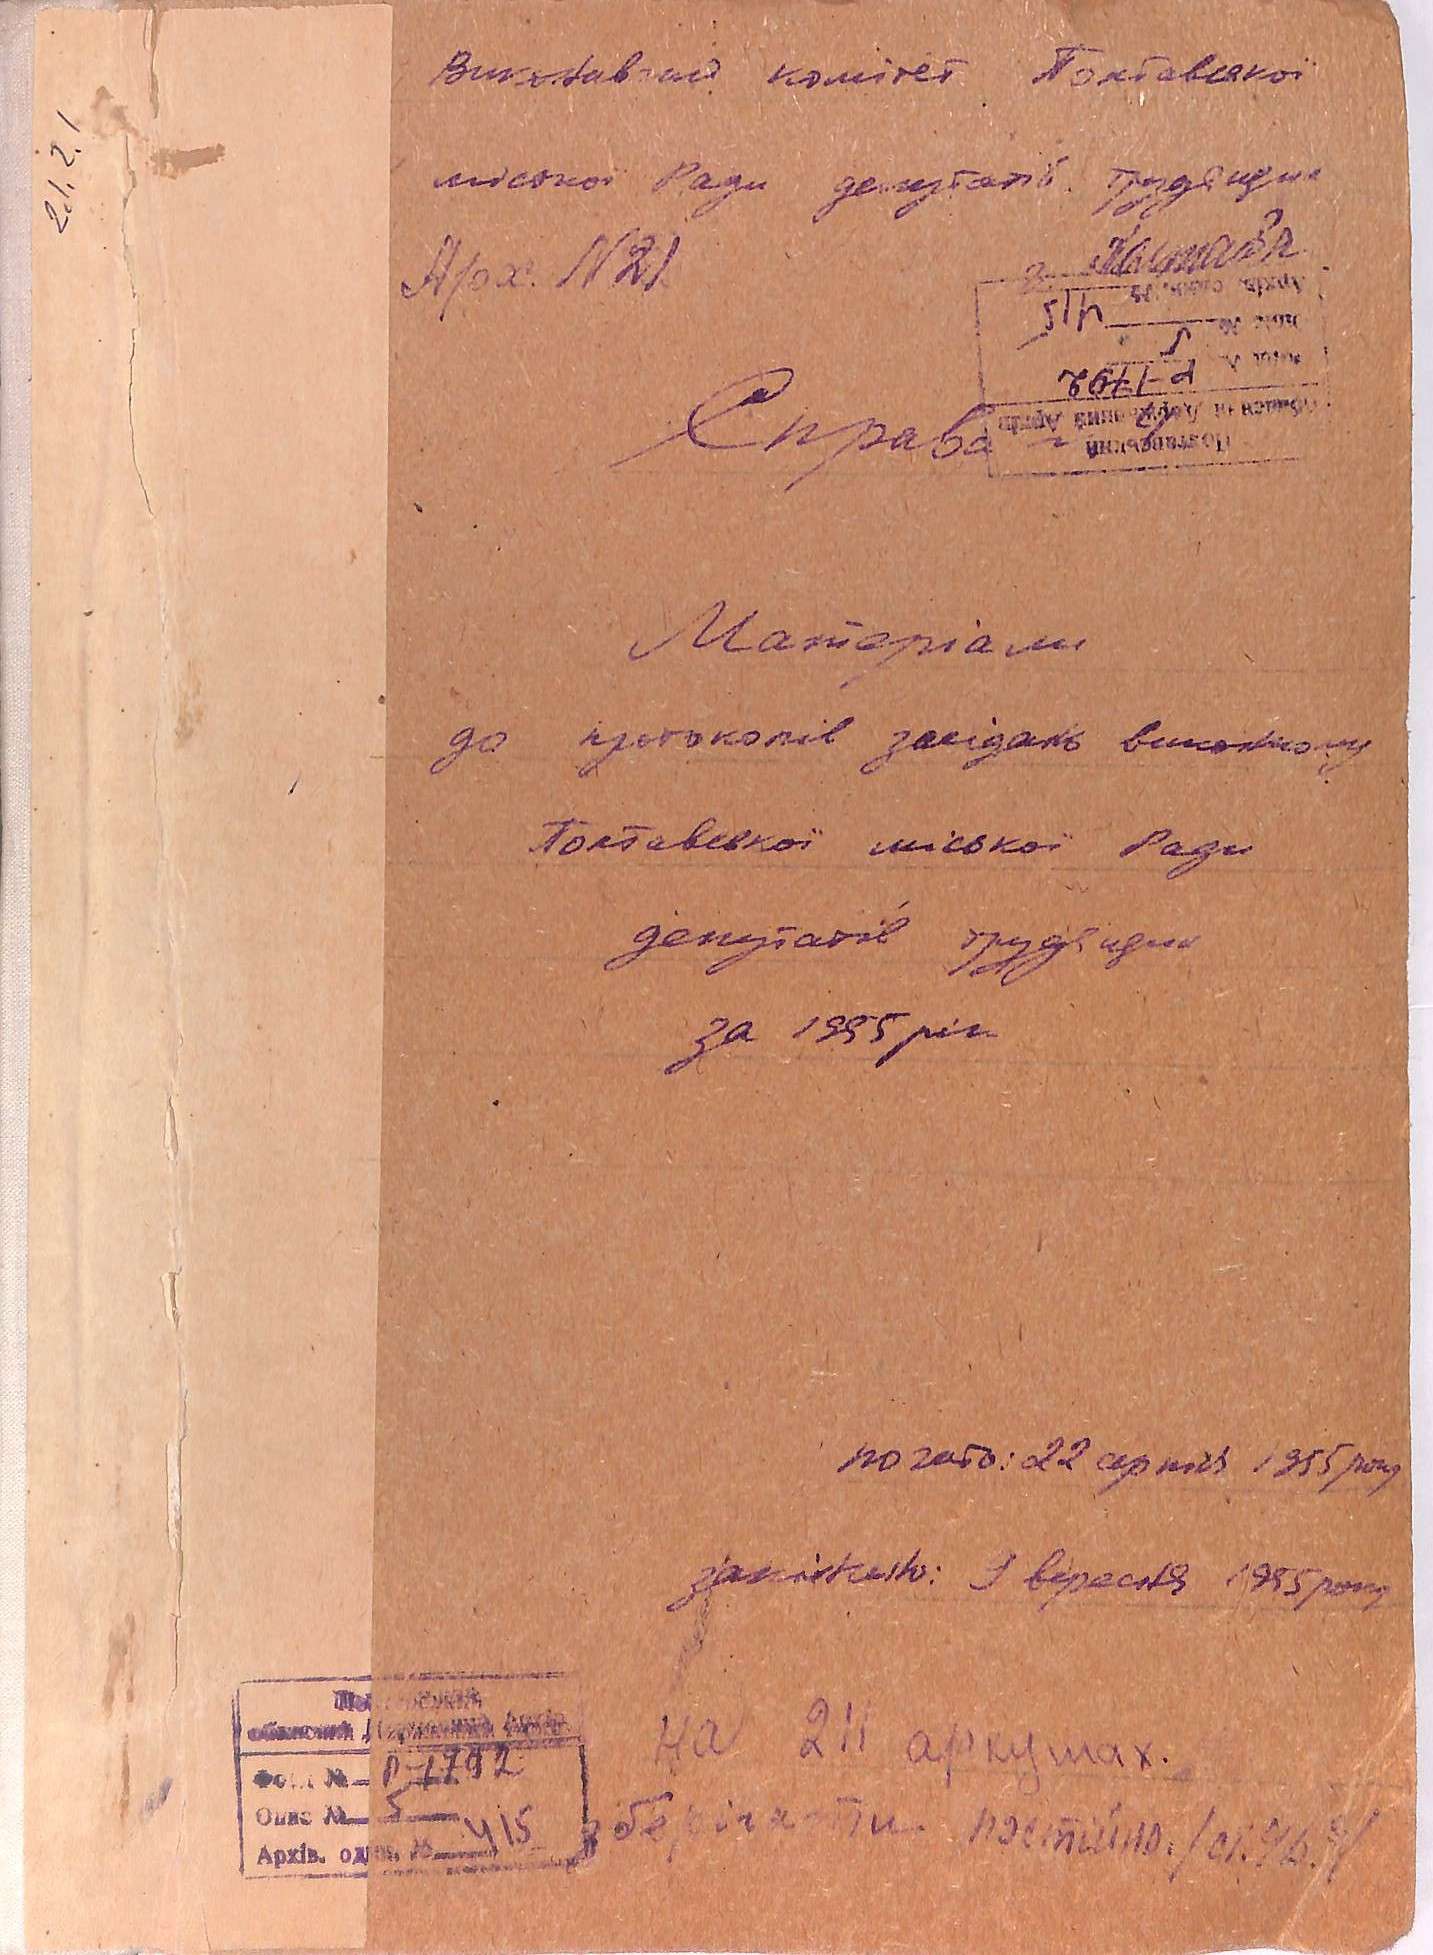 21.2.1
Виконавчий комітет Полтавської
міської Ради депутатів трудящих
Арх. N21
г. Полтава
Архів. один. № 415
Опис № 5
Фонд № Р-1792
Обласний Державний Архів
Полтавський
Справа -
Матеріали
до протоколів засідань виконкому
Полтавської міської Ради
депутатів трудящих
за 1955 рік
почато: 22 серпня 1955 року
закінчено: 9 вересня 1955 року
На 211 аркушах.
зберігати постійно.
Полтавський
обласний Державний Архів
Фонд № Р-1792
Опис № 5
Архів. один. № 415